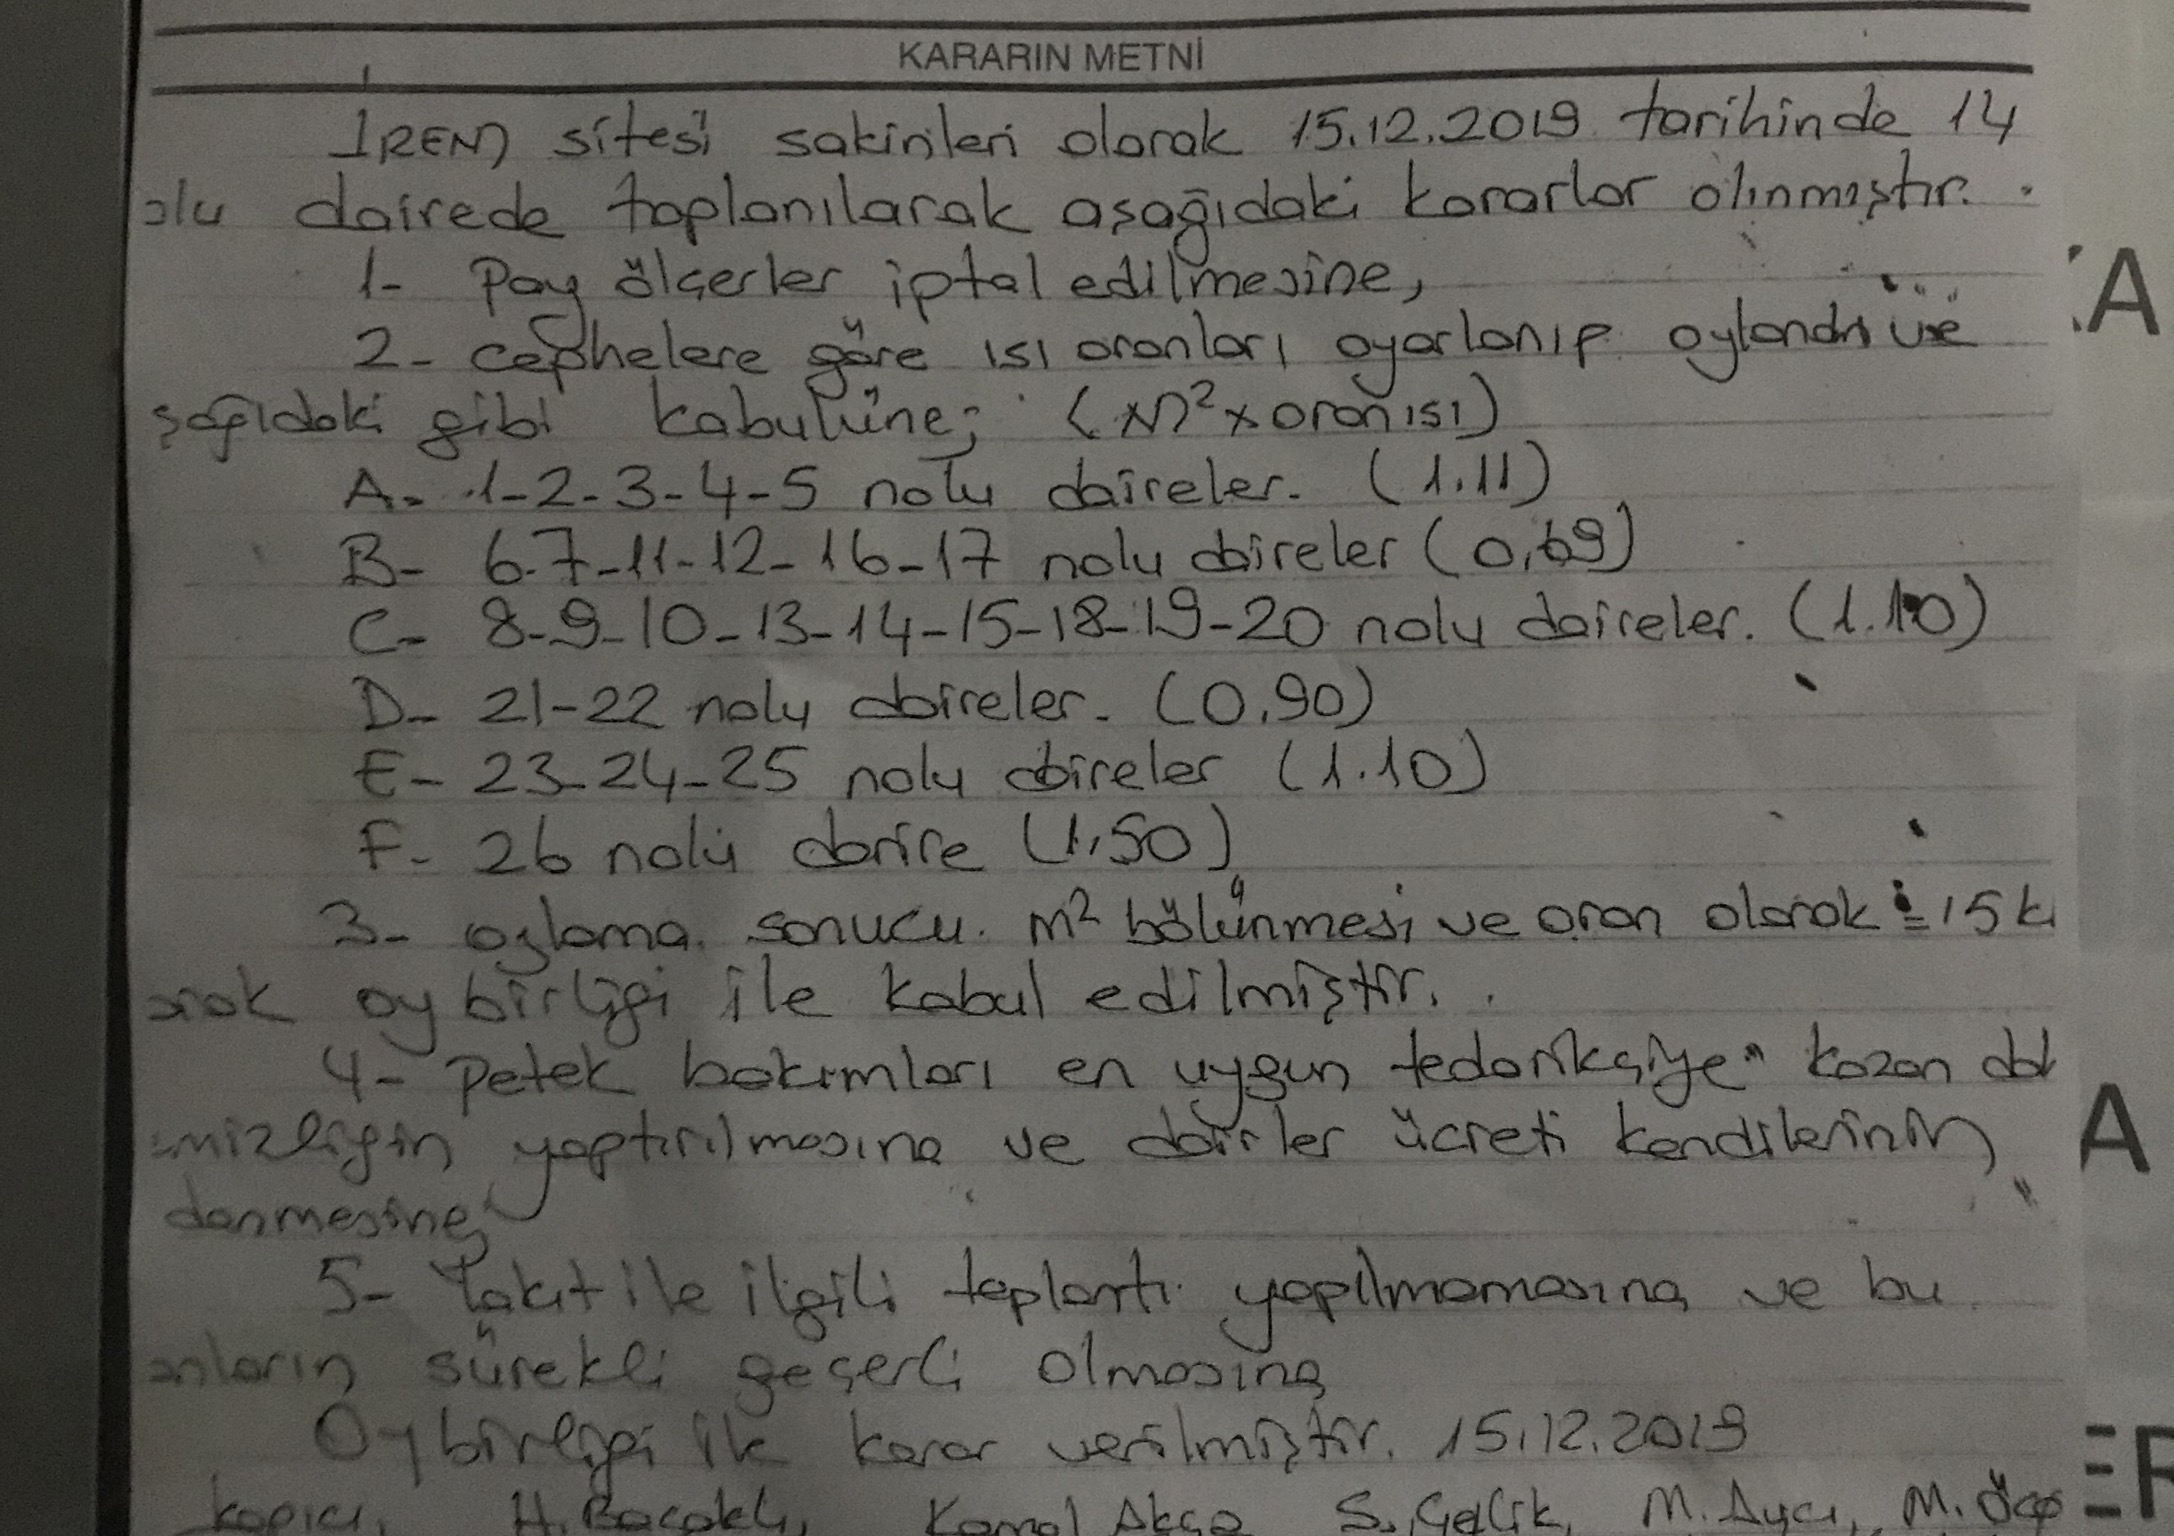 KARARIN METNİ
İREM sitesi sakinleri olarak 15.12.2019 tarihinde 14
olu dairede toplanılarak aşağıdaki kararlar alınmıştır.
1- Pay ölçerler iptal edilmesine,
2- cephelere göre ısı oranları ayarlanıp oylandı ve
şağıdaki gibi kabulüne; (m² x oran ısı)
A- 1-2-3-4-5 nolu daireler. (1.11)
B- 6-7-11-12-16-17 nolu daireler (0,69)
C- 8-9-10-13-14-15-18-19-20 nolu daireler. (1.10)
D- 21-22 nolu daireler. (0,90)
E- 23-24-25 nolu daireler (1.10)
F- 26 nolu daire (1,50)
3- oylama sonucu m² bölünmesi ve oran olarak 15 ki
arak oy birliği ile kabul edilmiştir.
4- Petek bakımları en uygun tedarikçiye kazan
mizliğin yaptırılmasına ve ücreti kendilerinin
5- Yakıt ile ilgili toplantı yapılmamasına ve bu
anların sürekli geçerli olmasına
Oybirliği ile karar verilmiştir. 15.12.2019
kapıcı, H. Bacaklı, Kemal Akça S. Çelik, M. Aycı, M.
KA
A
ER